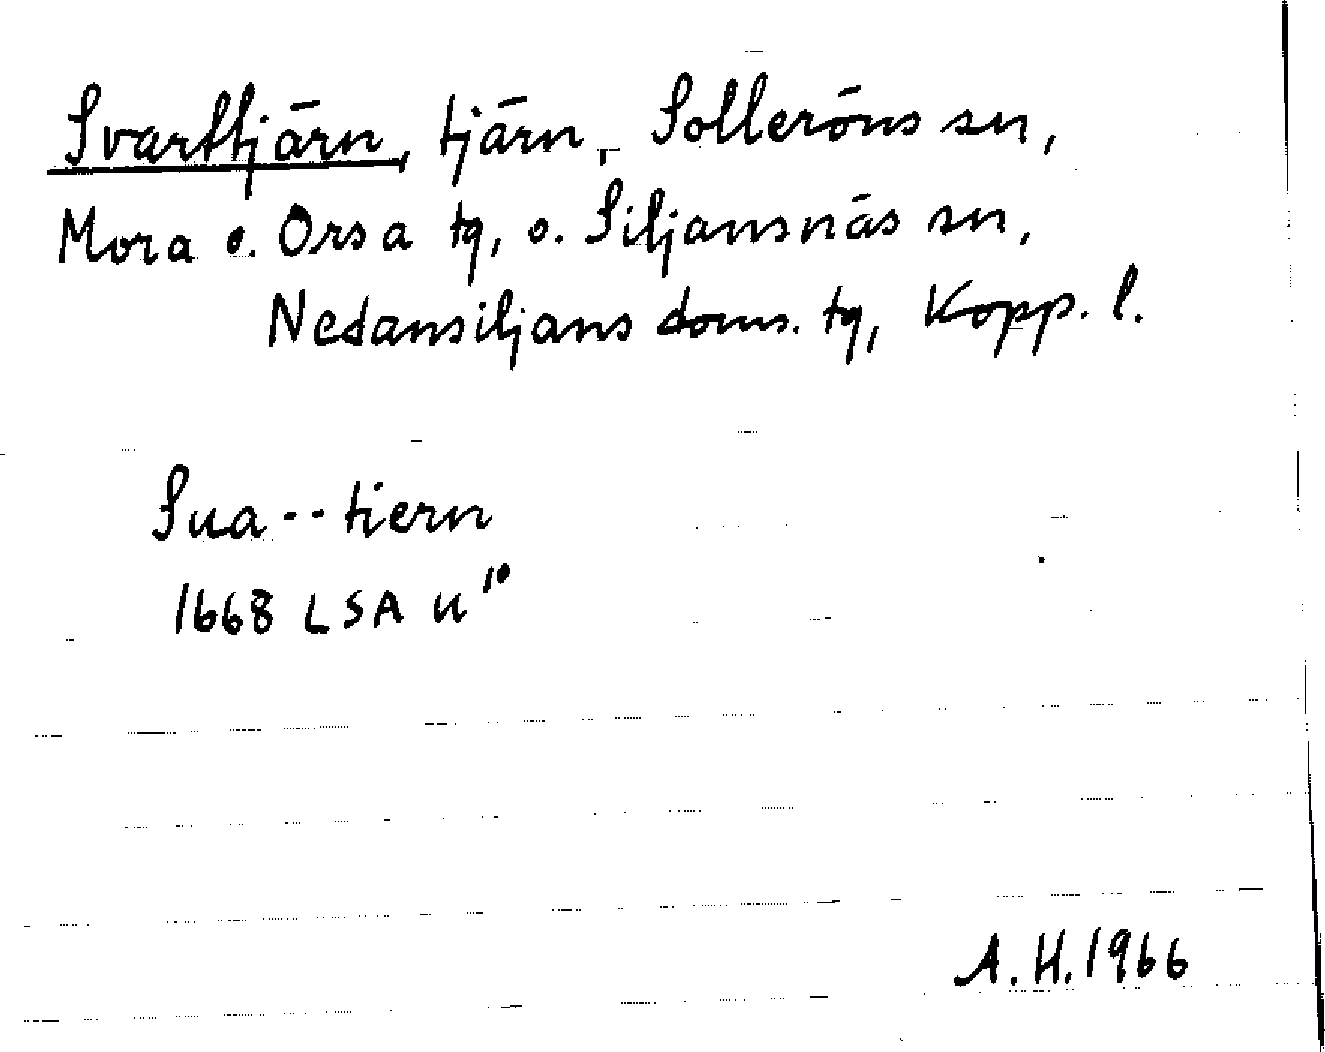 Svarttjärn, tjärn, Solleröns sn,
Mora o. Orsa tg, o. Siljansnäs sn,
Nedansiljans doms. tg, Kopp. l.
Sua -- tiern
1668 LSA U 10
A. H. 1966